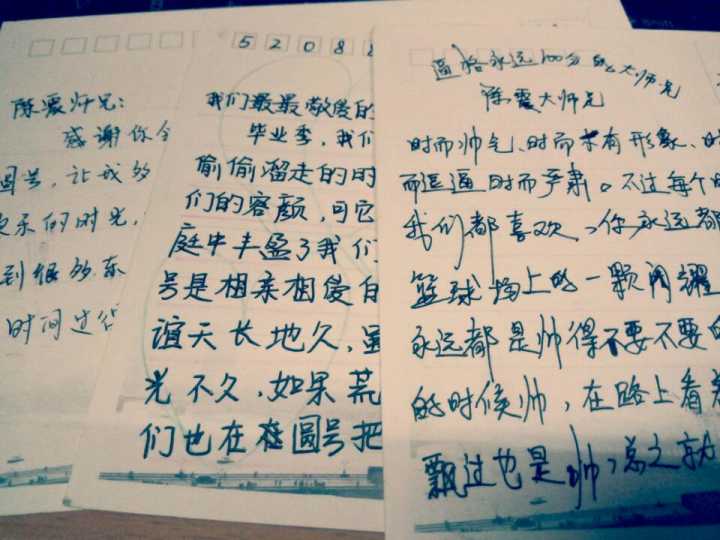 陈震师兄:
感谢你全
圆号,让我够
乐的时光,
到很多东
时间过
52088
我们最最敬爱的
毕业季,我们
偷偷溜走的时
们的容颜,可它
庭中丰盈了我们
号是相亲相爱的
谊天长地久,虽
光不久,如果荒
们也在在圆号把
逼格永远100分的大师兄
陈震大师兄
时而帅气、时而有形象、时
而逗逼时而严肃。不过每个
我们都喜欢,你永远都
篮球场上的一颗闪耀
永远都是帅得不要不要的
的时候帅,在路上看着
飘过也是帅,总之就